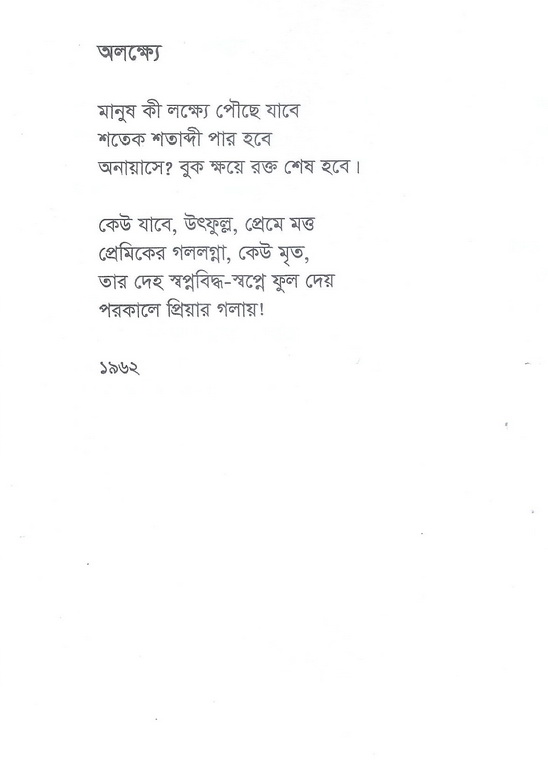 অলক্ষ্যে
মানুষ কী লক্ষ্যে পৌছে যাবে
শতেক শতাব্দী পার হবে
অনায়াসে? বুক ক্ষয়ে রক্ত শেষ হবে।
কেউ যাবে, উৎফুল্ল, প্রেমে মত্ত
প্রেমিকের গললগ্না, কেউ মৃত,
তার দেহ স্বপ্নবিদ্ধ-স্বপ্নে ফুল দেয়
পরকালে প্রিয়ার গলায়!
১৯৬২